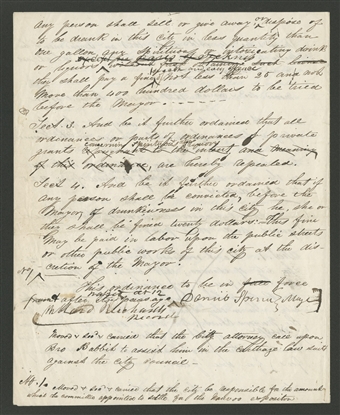 Any person shall sell or give away or dispose of
to be drunk in this city in less quantity than
one gallon any spirituous or intoxicating drink
or liquor
they shall pay a fine not less than 25 and not
more than one hundred dollars to be tried
before the Mayor.
Sect 3. And be it further ordained that all
ordinances or parts of ordinances or private
grants concerning spirituous liquors
are hereby repealed.
Sect 4. And be it further ordained that if
any person shall be convicted before the
Mayor of drunkenness in this city he, she or
they shall be fined twenty dollars. This fine
may be paid in labor upon the public streets
or other public works of this city at the dis
cretion of the Mayor.
This ordinance to be in force
from & after its passage
Willard Richards
Recorder
Moved & sec'd & carried that the City attorney call upon
Bro Babbit to assist him in the Carthage law suits
against the city council.
Moved & sec'd & carried that the city be responsible for the amount
that the committee appointed to settle for the Nauvoo expositor